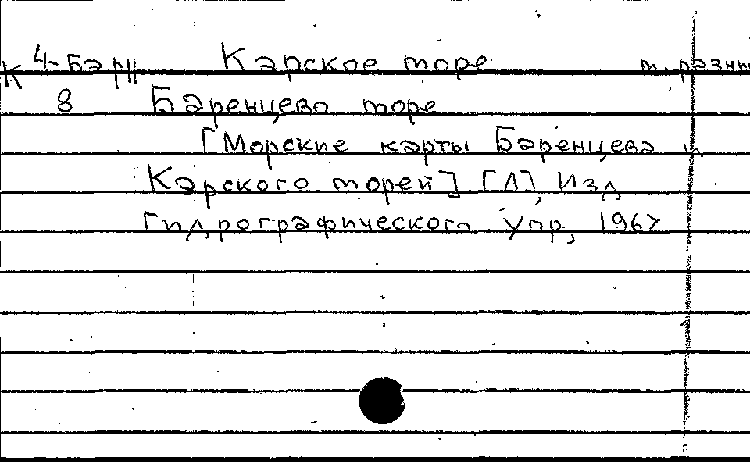 К 4-Бар Карское море м. разн
8 Баренцево море
[Морские карты Баренцева и
Карского морей] [Л], Изд
Гидрографического Упр, 1967